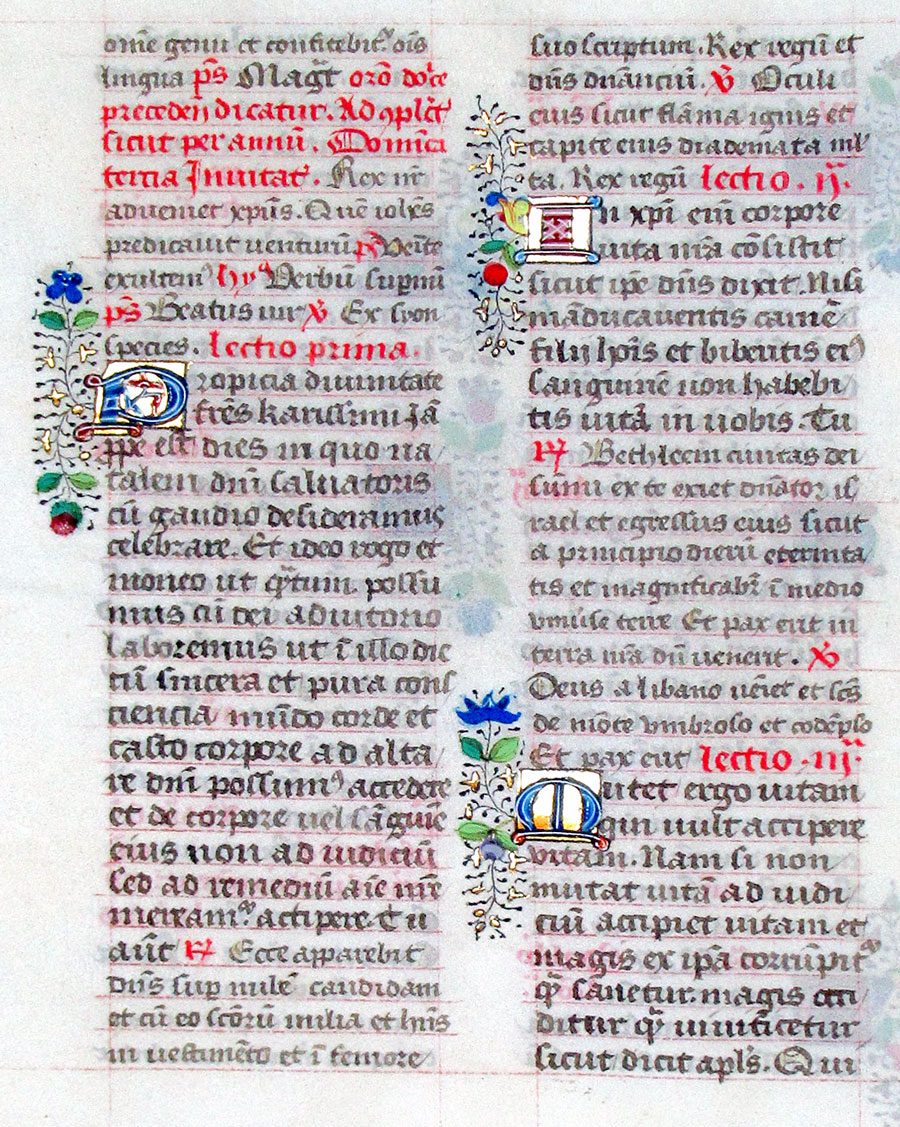 om̄e genu et confitebit᷑ oīs
lingua p̄s Magn̄t orō do͞ce
precedeñ dicatur. Ad ɔplet̄
sicut per annū. Domīca
tertia Inuitat̄. Rex nr̄
adueniet xp̄us. Quē ioh̄es
predicauit venturū p̄s Venite
exultem᷒ hy᷒ Verbū supnū
p̄s Beatus uir v̄ Ex syon
species. Lectio prima.
Propicia diuinitate
fr̄es karissimi Jā
ꝓpe est dies in quo na
talem dn̄i saluatoris
cū gaudio desideramus
celebrare. Et ideo rogo et
moneo ut qn̄tum possu
mus cū dei adiutorio
laboremus ut ī illo die
cū sincera et pura cons
ciencia mūdo corde et
casto corpore ad alta
re dn̄i possum᷒ accedere
et de corpore uel sāguīe
eius non ad iudiciū
sed ad remediū aīe nr̄e
meream᷑ accipere. Tu
aūt R̄ Ecce apparebit
dn̄s sup nubē candidam
et cū eo sc̄orū milia et h̄ns
in uestimēto et ī femore
suo scriptum. Rex regū et
dn̄s dn̄anciū. v̄ Oculi
eius sicut flāma ignis et
capite eius diademata ml̄
ta. Rex regū Lectio .ij.
In xpi enī corpore
uita nr̄a cōsistit
sicut ip̄e dn̄s dixit. Nisi
māducaueritis carnē
filij ho͞is et biberitis ei᷒
sanguinē non habebi
tis uitā in uobis. Tu
R̄ Bethleem ciuitas dei
sūmi ex te exiet dn̄ator is
rael et egressus eius sicut
a principio dierū eternita
tis et magnificabit᷑ ī medio
vniuse terre Et pax erit in
terra nr̄a dū uenerit. v̄
Deus a libano ueīet et sc̄s
de mōte vmbroso et cōdenso
Et pax erit Lectio .iij.
Mutet ergo uitam
qui uult accipere
vitam. Nam si non
mutat uitā ad iudi
ciū accipiet uitam et
magis ex ip̄a corrūpit᷑
qꝫ sanetur. magis occi
ditur qꝫ uiuificetur
sicut dicit apl̄s. Qui